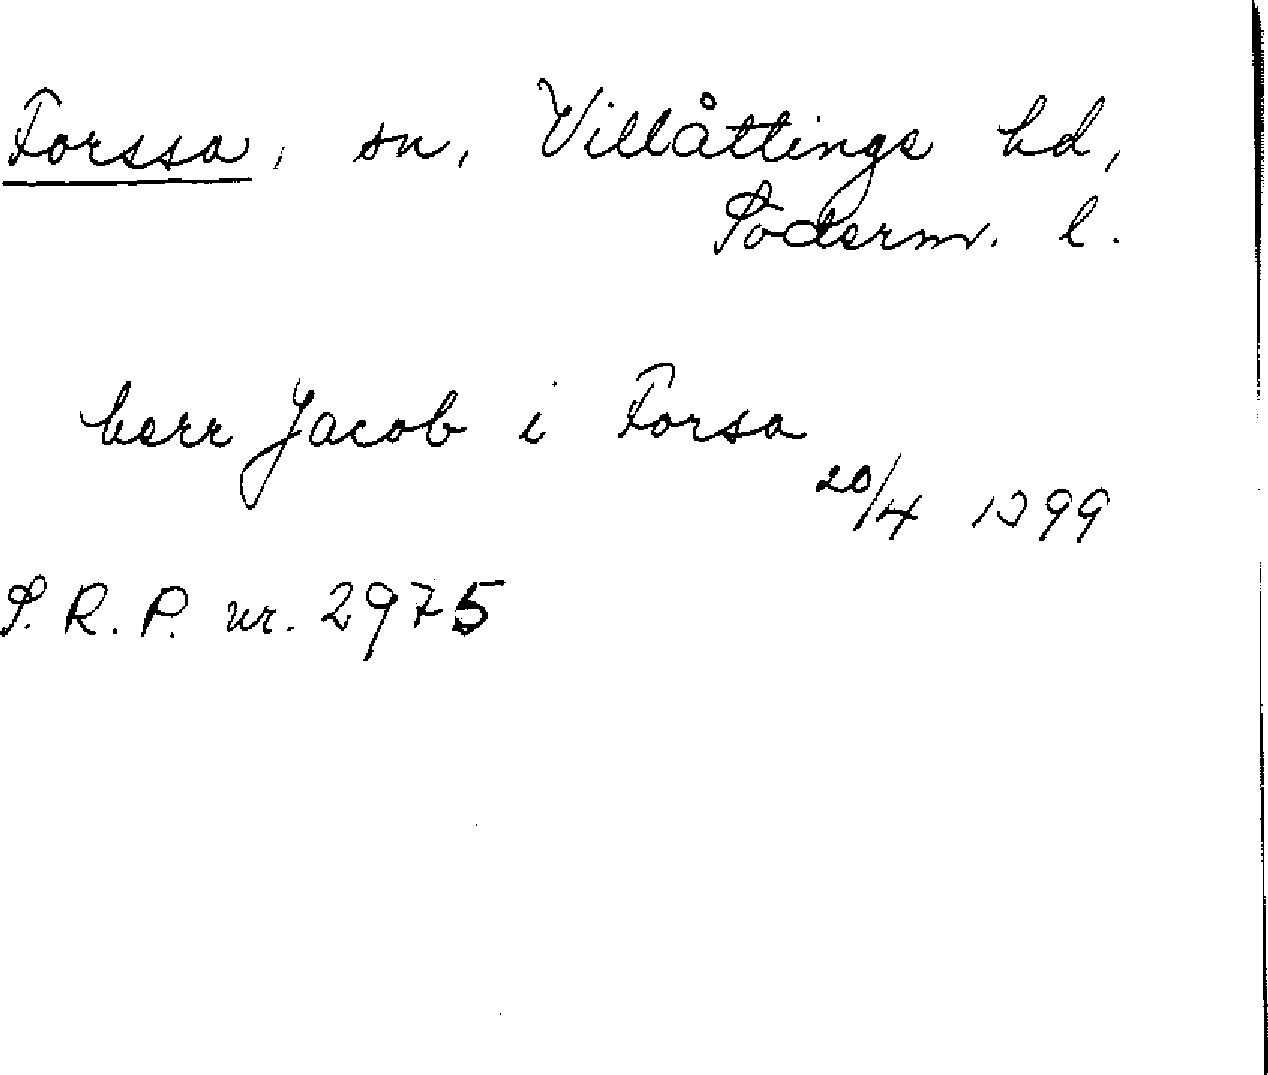 Forssa, sn, Villåttings hd,
Söderm. l.
herr Jacob i Forsa
20/4 1399
S.R.P. nr. 2975